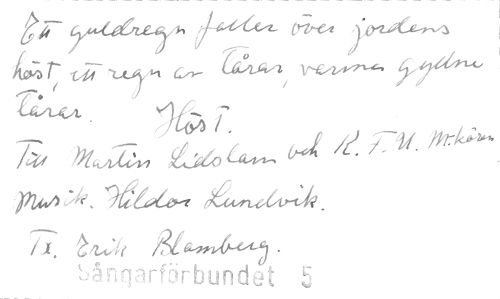 Ett guldregn faller över jordens
höst, ett regn av tårar, varma gyllne
tårar. Höst.
Till Martin Lidstam och K. F. U. M:kören
Musik. Hildor Lundvik.
Tx. Erik Blomberg.
Sångarförbundet 5